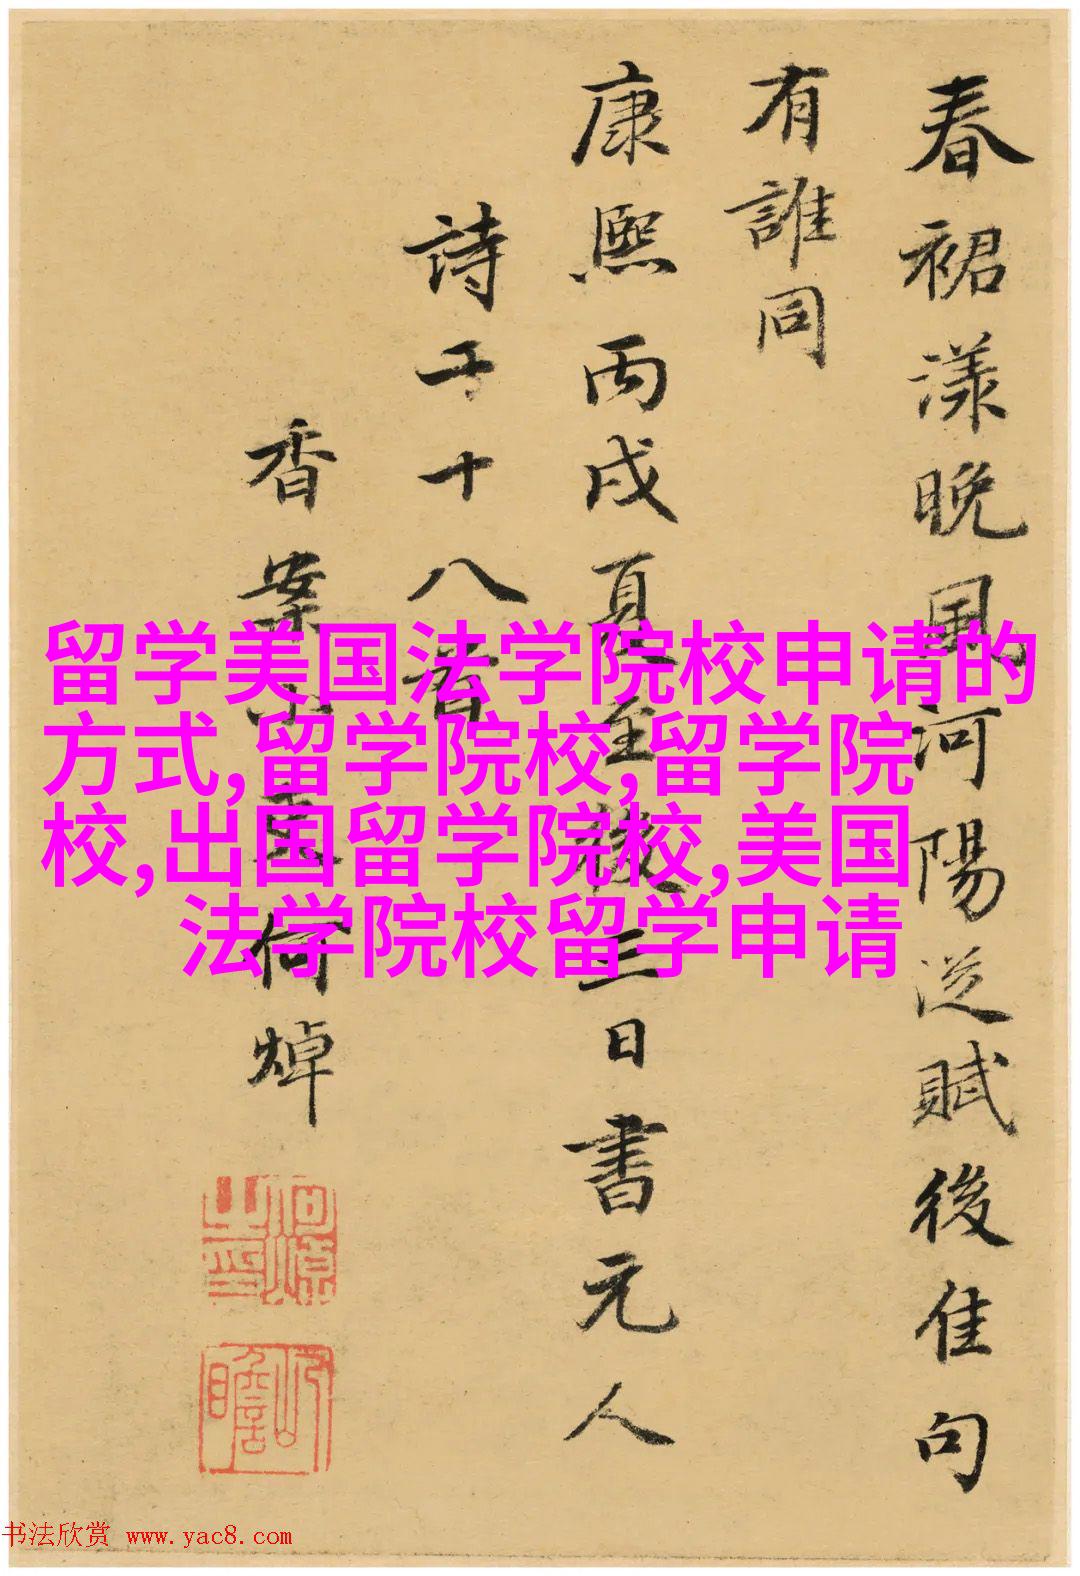 春裙漾晚風河陽從賦後佳句
有誰同
康熙丙戌夏至後三日書元人
詩于十八首
香案小吏何焯
何焯之印
屺瞻
留学美国法学院校申请的
方式,留学院校,留学院
校,出国留学院校,美国
法学院校留学申请
书法欣赏 www.yac8.com